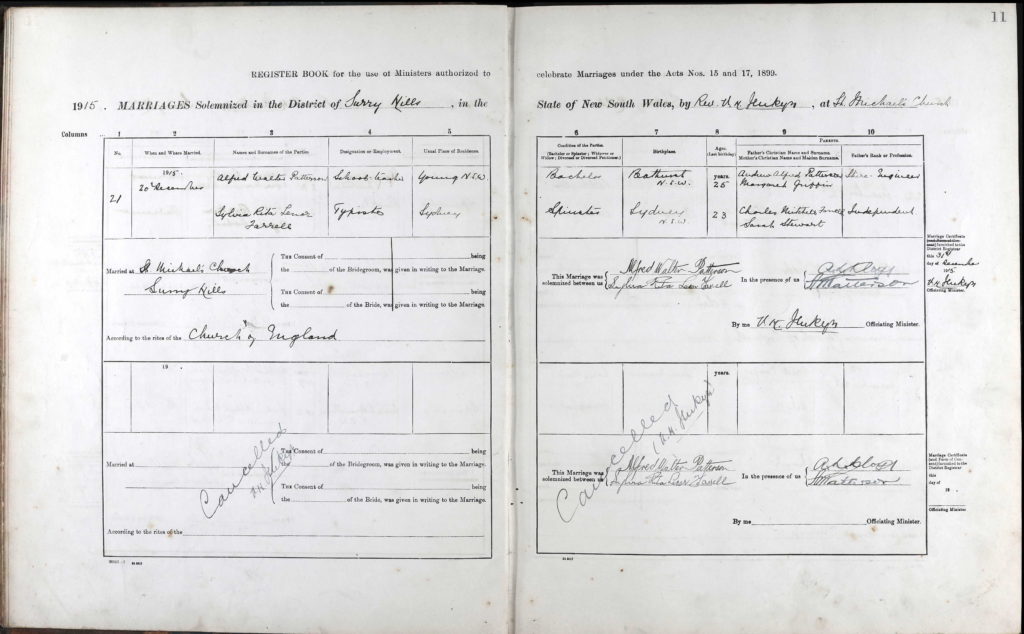 11
REGISTER BOOK for the use of Ministers authorized to celebrate Marriages under the Acts Nos. 15 and 17, 1899.
1915. MARRIAGES Solemnized in the District of Surry Hills, in the State of New South Wales, by Rev. , at St. Michael's Church
Columns 1 2 3 4 5 6 7 8 9 10
No. When and Where Married. Names and Surnames of the Parties. Designation or Employment. Usual Place of Residence.
Condition of the Parties. Birthplace. Ages. Parents.
(Bachelor or Spinster; Widower or Widow; Divorced or Divorced Petitioner.) (Last birthday) Father's Christian Name and Surname. Mother's Christian Name and Maiden Surname. Father's Rank or Profession.
21
1915.
20 December
Alfred Walter Patterson School-teacher Young N.S.W. Bachelor Bathurst N.S.W. years 25 Andrew Alfred Patterson Engineer
Margaret
Sylvia Rita Farrell Typiste Sydney Spinster Sydney N.S.W. 23 Charles Independent
Sarah Stewart
Married at St. Michael's Church
Surry Hills
The Consent of being
the of the Bridegroom, was given in writing to the Marriage.
The Consent of being
the of the Bride, was given in writing to the Marriage.
According to the rites of the Church of England
This Marriage was solemnized between us
Alfred Walter Patterson
Sylvia Rita
In the presence of us
By me Officiating Minister.
Marriage Certificate
forwarded to the
District Registrar
this 31st
day of December
1915
Officiating Minister.
19
years.
Cancelled
Married at
The Consent of being
the of the Bridegroom, was given in writing to the Marriage.
The Consent of being
the of the Bride, was given in writing to the Marriage.
According to the rites of the
Cancelled
This Marriage was solemnized between us
Alfred Walter Patterson
Sylvia Rita
In the presence of us
By me Officiating Minister.
Marriage Certificate
forwarded to the
District Registrar
this
day of
19 .
Officiating Minister